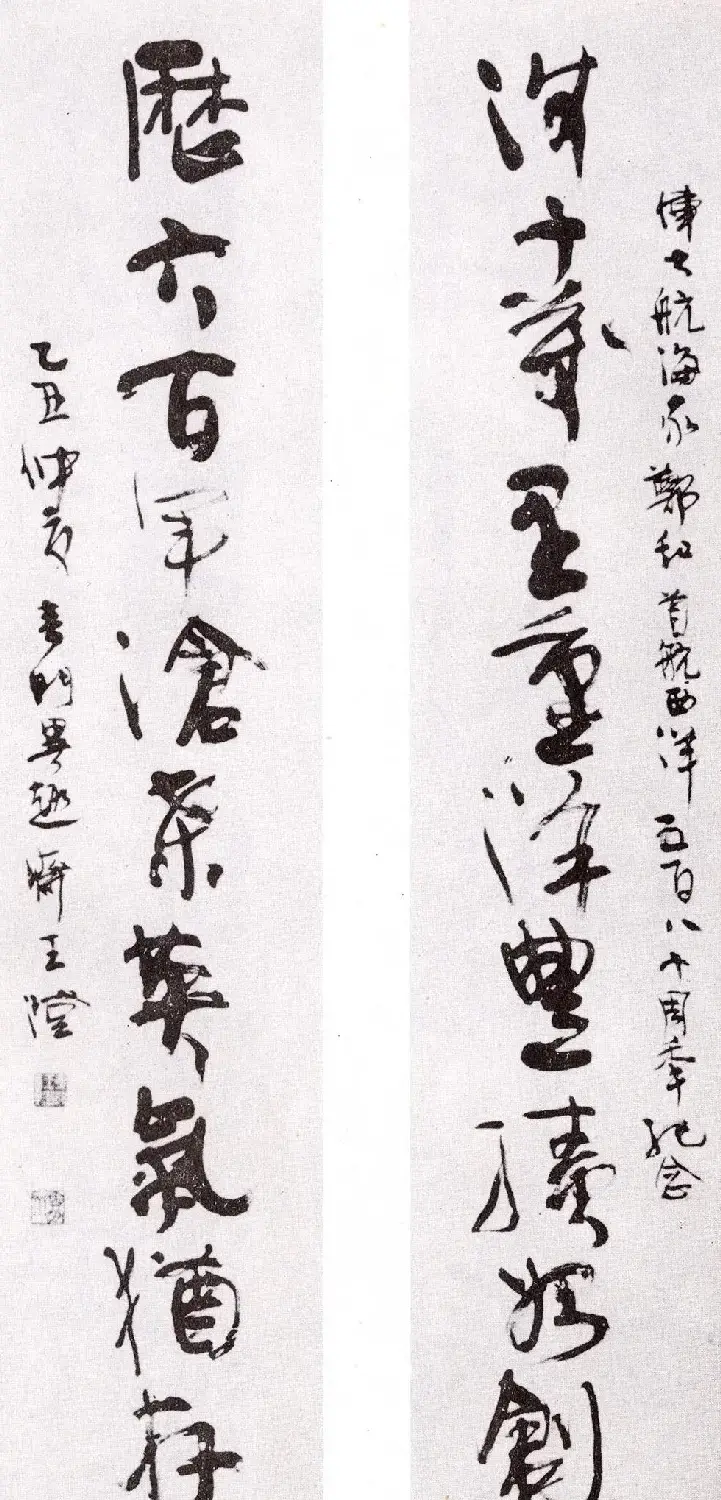 偉大航海家鄭和首航西洋五百八十周年紀念
涉十萬里重洋豐績始創
歷六百年滄桑英氣猶存
乙丑仲夏吳門